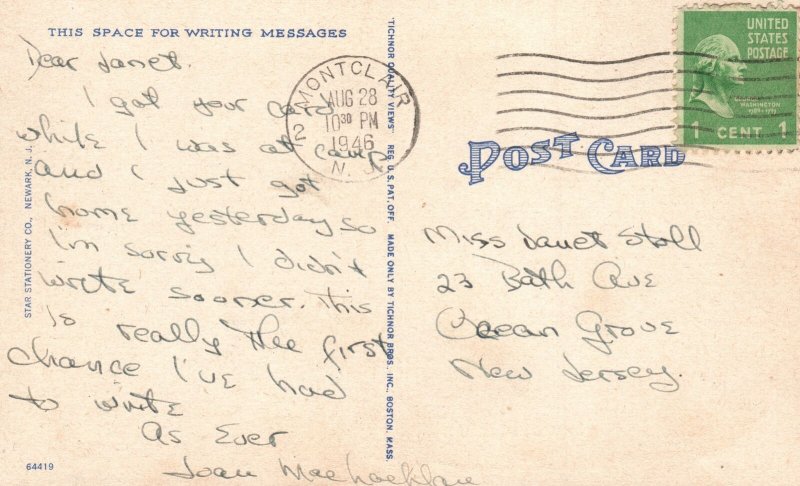 THIS SPACE FOR WRITING MESSAGES
Dear Janet
I got your card
while I was at camp
and I just got
home yesterday so
I'm sorry I didn't
write sooner. This
is really the first
chance I've had
to write
As Ever
Joan
64419
STAR STATIONERY CO., NEWARK, N. J.
MONTCLAIR
AUG 28
10 30 PM
1946
N. J.
2
TICHNOR QUALITY VIEWS REG. U. S. PAT. OFF. MADE ONLY BY TICHNOR BROS. INC., BOSTON, MASS.
UNITED
STATES
POSTAGE
WASHINGTON
1 CENT 1
POST CARD
Miss Janet Stoll
23 Bath Ave
Ocean Grove
New Jersey.